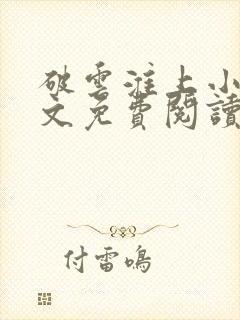 破雲淮上小
文免費閱讀
付雷鳴